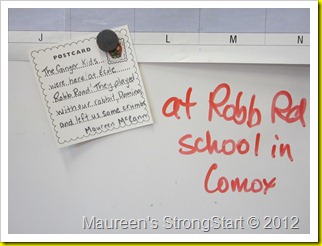 J
L
M
N
POSTCARD
The Kids...
were here at École
Robb Road! They played
with our rabbit, Domino,
and left us some crumbs
Maureen McCann
at Robb Rd
school in
Comox
Maureen's StrongStart © 2012